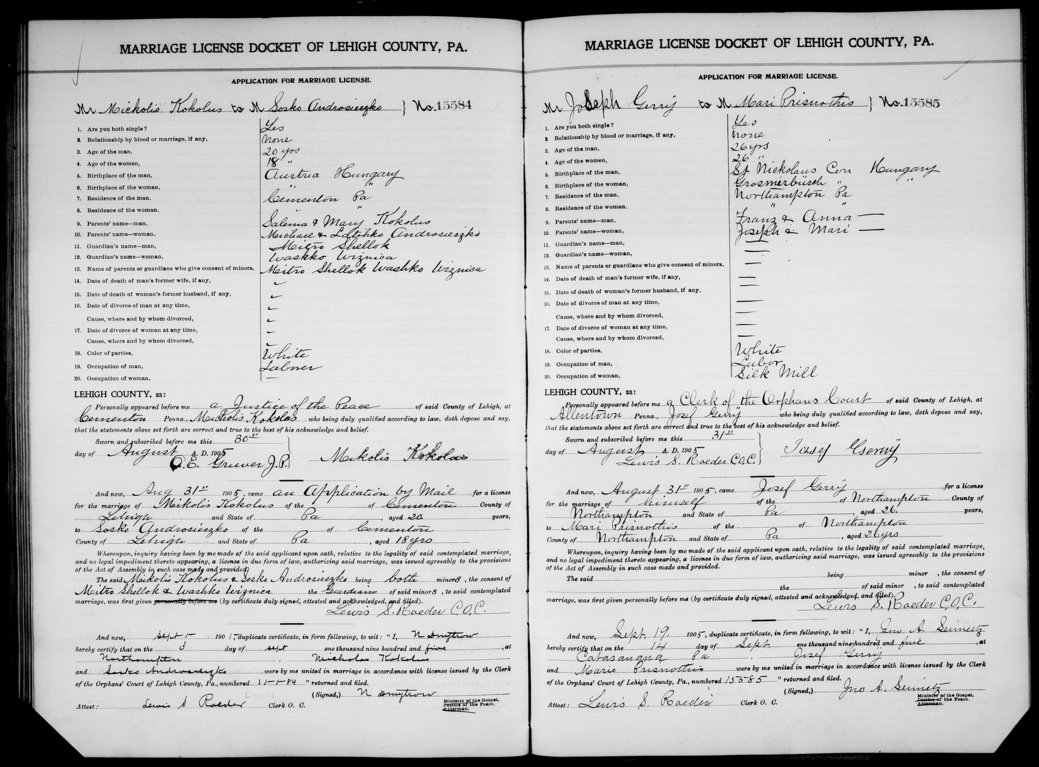 MARRIAGE LICENSE DOCKET OF LEHIGH COUNTY, PA.
APPLICATION FOR MARRIAGE LICENSE.
Mr Mickolis Kokolus to M Sosko Androsieszko } No. 15584
1. Are you both single? Yes
2. Relationship by blood or marriage, if any, None
3. Age of the man, 20 yrs
4. Age of the women, 18 "
5. Birthplace of the man, Austria Hungary
6. Birthplace of the woman, " "
7. Residence of the man, Cementon Pa
8. Residence of the woman, " "
9. Parents' name—man, Salema & Mary Kokolus
10. Parents' name—woman, Michael & Androsieszko
11. Guardian's name—man, Mitro Shellok
12. Guardian's name—woman, Washko Wiznica
13. Name of parents or guardians who give consent of minors, Mitro Shellok Washko Wiznica
14. Date of death of man's former wife, if any, —
15. Date of death of woman's former husband, if any, —
16. Date of divorce of man at any time, —
Cause, where and by whom divorced, —
17. Date of divorce of woman at any time, —
Cause, where and by whom divorced, —
18. Color of parties, White
19. Occupation of man, Laborer
20. Occupation of woman, —
LEHIGH COUNTY, ss:
Personally appeared before me a Justice of the Peace of said County of Lehigh, at
Cementon Penna., Mickolis Kokolas who being duly qualified according to law, doth depose and say,
that the statements above set forth are correct and true to the best of his acknowledge and belief.
Sworn and subscribed before me this 30st
day of August A. D. 1905 } Mikolis Kokolas
O. E. Gruver J.P.
And now, Aug 31st 1905, came an Application by Mail for a license
for the marriage of Mikolis Kokolus of the of Cementon County of
Lehigh and State of Pa, aged 20 years,
to Sosko Androsieszko of the of Cementon
County of Lehigh and State of Pa, aged 18 yrs
Whereupon, inquiry having been by me made of the said applicant upon oath, relative to the legality of said contemplated marriage,
and no legal impediment thereto appearing, a license in due form of law, authorizing said marriage, was issued agreeably to the provisions
of the Act of Assembly in such case made and provided.
The said Mikolis Kokolus & Sosko Androsieszko being both minors, the consent of
Mitro Shellok & Washko Wiznica the Guardians of said minors, to said contemplated
marriage, was first given personally before me (by certificate duly signed, attested and acknowledged, and filed).
Lewis S. Raeder C.O.C.
And now, Sept 1905 duplicate certificate, in form following, to wit: "I, N Dmytrow
hereby certify that on the 3 day of sept one thousand nine hundred and five, at
Northampton Nicholas Kokolus
and Sosko Androsieszko were by me united in marriage in accordance with license issued by the Clerk
of the Orphans' Court of Lehigh County, Pa., numbered " returned and filed.
(Signed,) N Dmytrow
Minister of the Gospel.
Justice of the Peace.
Alderman.
Attest: Lewis S Raeder Clerk O. C.
MARRIAGE LICENSE DOCKET OF LEHIGH COUNTY, PA.
APPLICATION FOR MARRIAGE LICENSE.
Mr Joseph Gerrÿ to M Mari Prisnothis } No. 15585
1. Are you both single? Yes
2. Relationship by blood or marriage, if any, None
3. Age of the man, 26 yrs
4. Age of the women, 26 "
5. Birthplace of the man, St Nickolaus Hungary
6. Birthplace of the woman, Grosmerbüsch " "
7. Residence of the man, Northampton Pa
8. Residence of the woman, " "
9. Parents' name—man, Franz & Anna —
10. Parents' name—woman, Joseph & Mari —
11. Guardian's name—man, —
12. Guardian's name—woman, —
13. Name of parents or guardians who give consent of minors, —
14. Date of death of man's former wife, if any, —
15. Date of death of woman's former husband, if any, —
16. Date of divorce of man at any time, —
Cause, where and by whom divorced, —
17. Date of divorce of woman at any time, —
Cause, where and by whom divorced, —
18. Color of parties, White
19. Occupation of man, Labor
20. Occupation of woman, Silk Mill
LEHIGH COUNTY, ss:
Personally appeared before me a Clerk of the Orphans Court of said County of Lehigh, at
Allentown Penna., Josef Gerrÿ who being duly qualified according to law, doth depose and say,
that the statements above set forth are correct and true to the best of his acknowledge and belief.
Sworn and subscribed before me this 31st
day of August A. D. 1905 } Josef
Lewis S. Raeder C.O.C.
And now, August 31st 1905, came Josef Gerry for a license
for the marriage of himself of the of Northampton County of
Northampton and State of Pa, aged 26 years,
to Mari Prisnothis of the of Northampton
County of Northampton and State of Pa, aged 26 yrs
Whereupon, inquiry having been by me made of the said applicant upon oath, relative to the legality of said contemplated marriage,
and no legal impediment thereto appearing, a license in due form of law, authorizing said marriage, was issued agreeably to the provisions
of the Act of Assembly in such case made and provided.
The said being minor, the consent of
the of said minor, to said contemplated
marriage, was first given personally before me (by certificate duly signed, attested and acknowledged, and filed).
Lewis S. Raeder C.O.C.
And now, Sept. 19, 1905, duplicate certificate, in form following, to wit: "I, Geo. A.
hereby certify that on the 14 day of Sept. one thousand nine hundred and five, at
Catasauqua Pa Josef Gerry
and Marie Prisnothis were by me united in marriage in accordance with license issued by the Clerk
of the Orphans' Court of Lehigh County, Pa., numbered 15585 " returned and filed.
(Signed,)
Minister of the Gospel.
Justice of the Peace.
Alderman.
Attest: Lewis S. Raeder Clerk O. C.